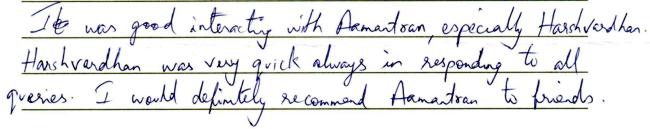 It was good interacting with Aamantran, especially Harshvardhan.
Harshvardhan was very quick always in responding to all
queries. I would definitely recommend Aamantran to friends.